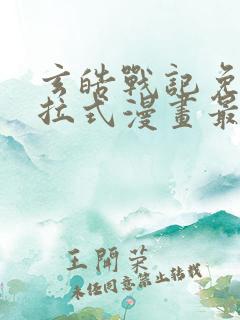 玄皓戰記免
拉式漫畫最
王開荣
未任同意禁止转载